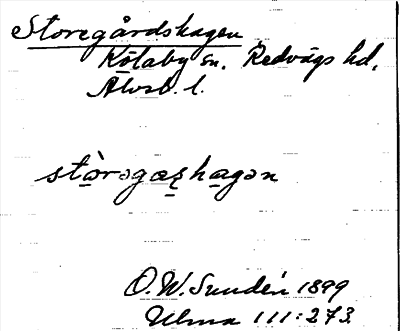 Storegårdshagen
Kölaby sn. Redvägs hd.
Älvsb. l.
stò̱rəgæʂha̱gən
O.W. Sundén 1899
Ulma 111:273.